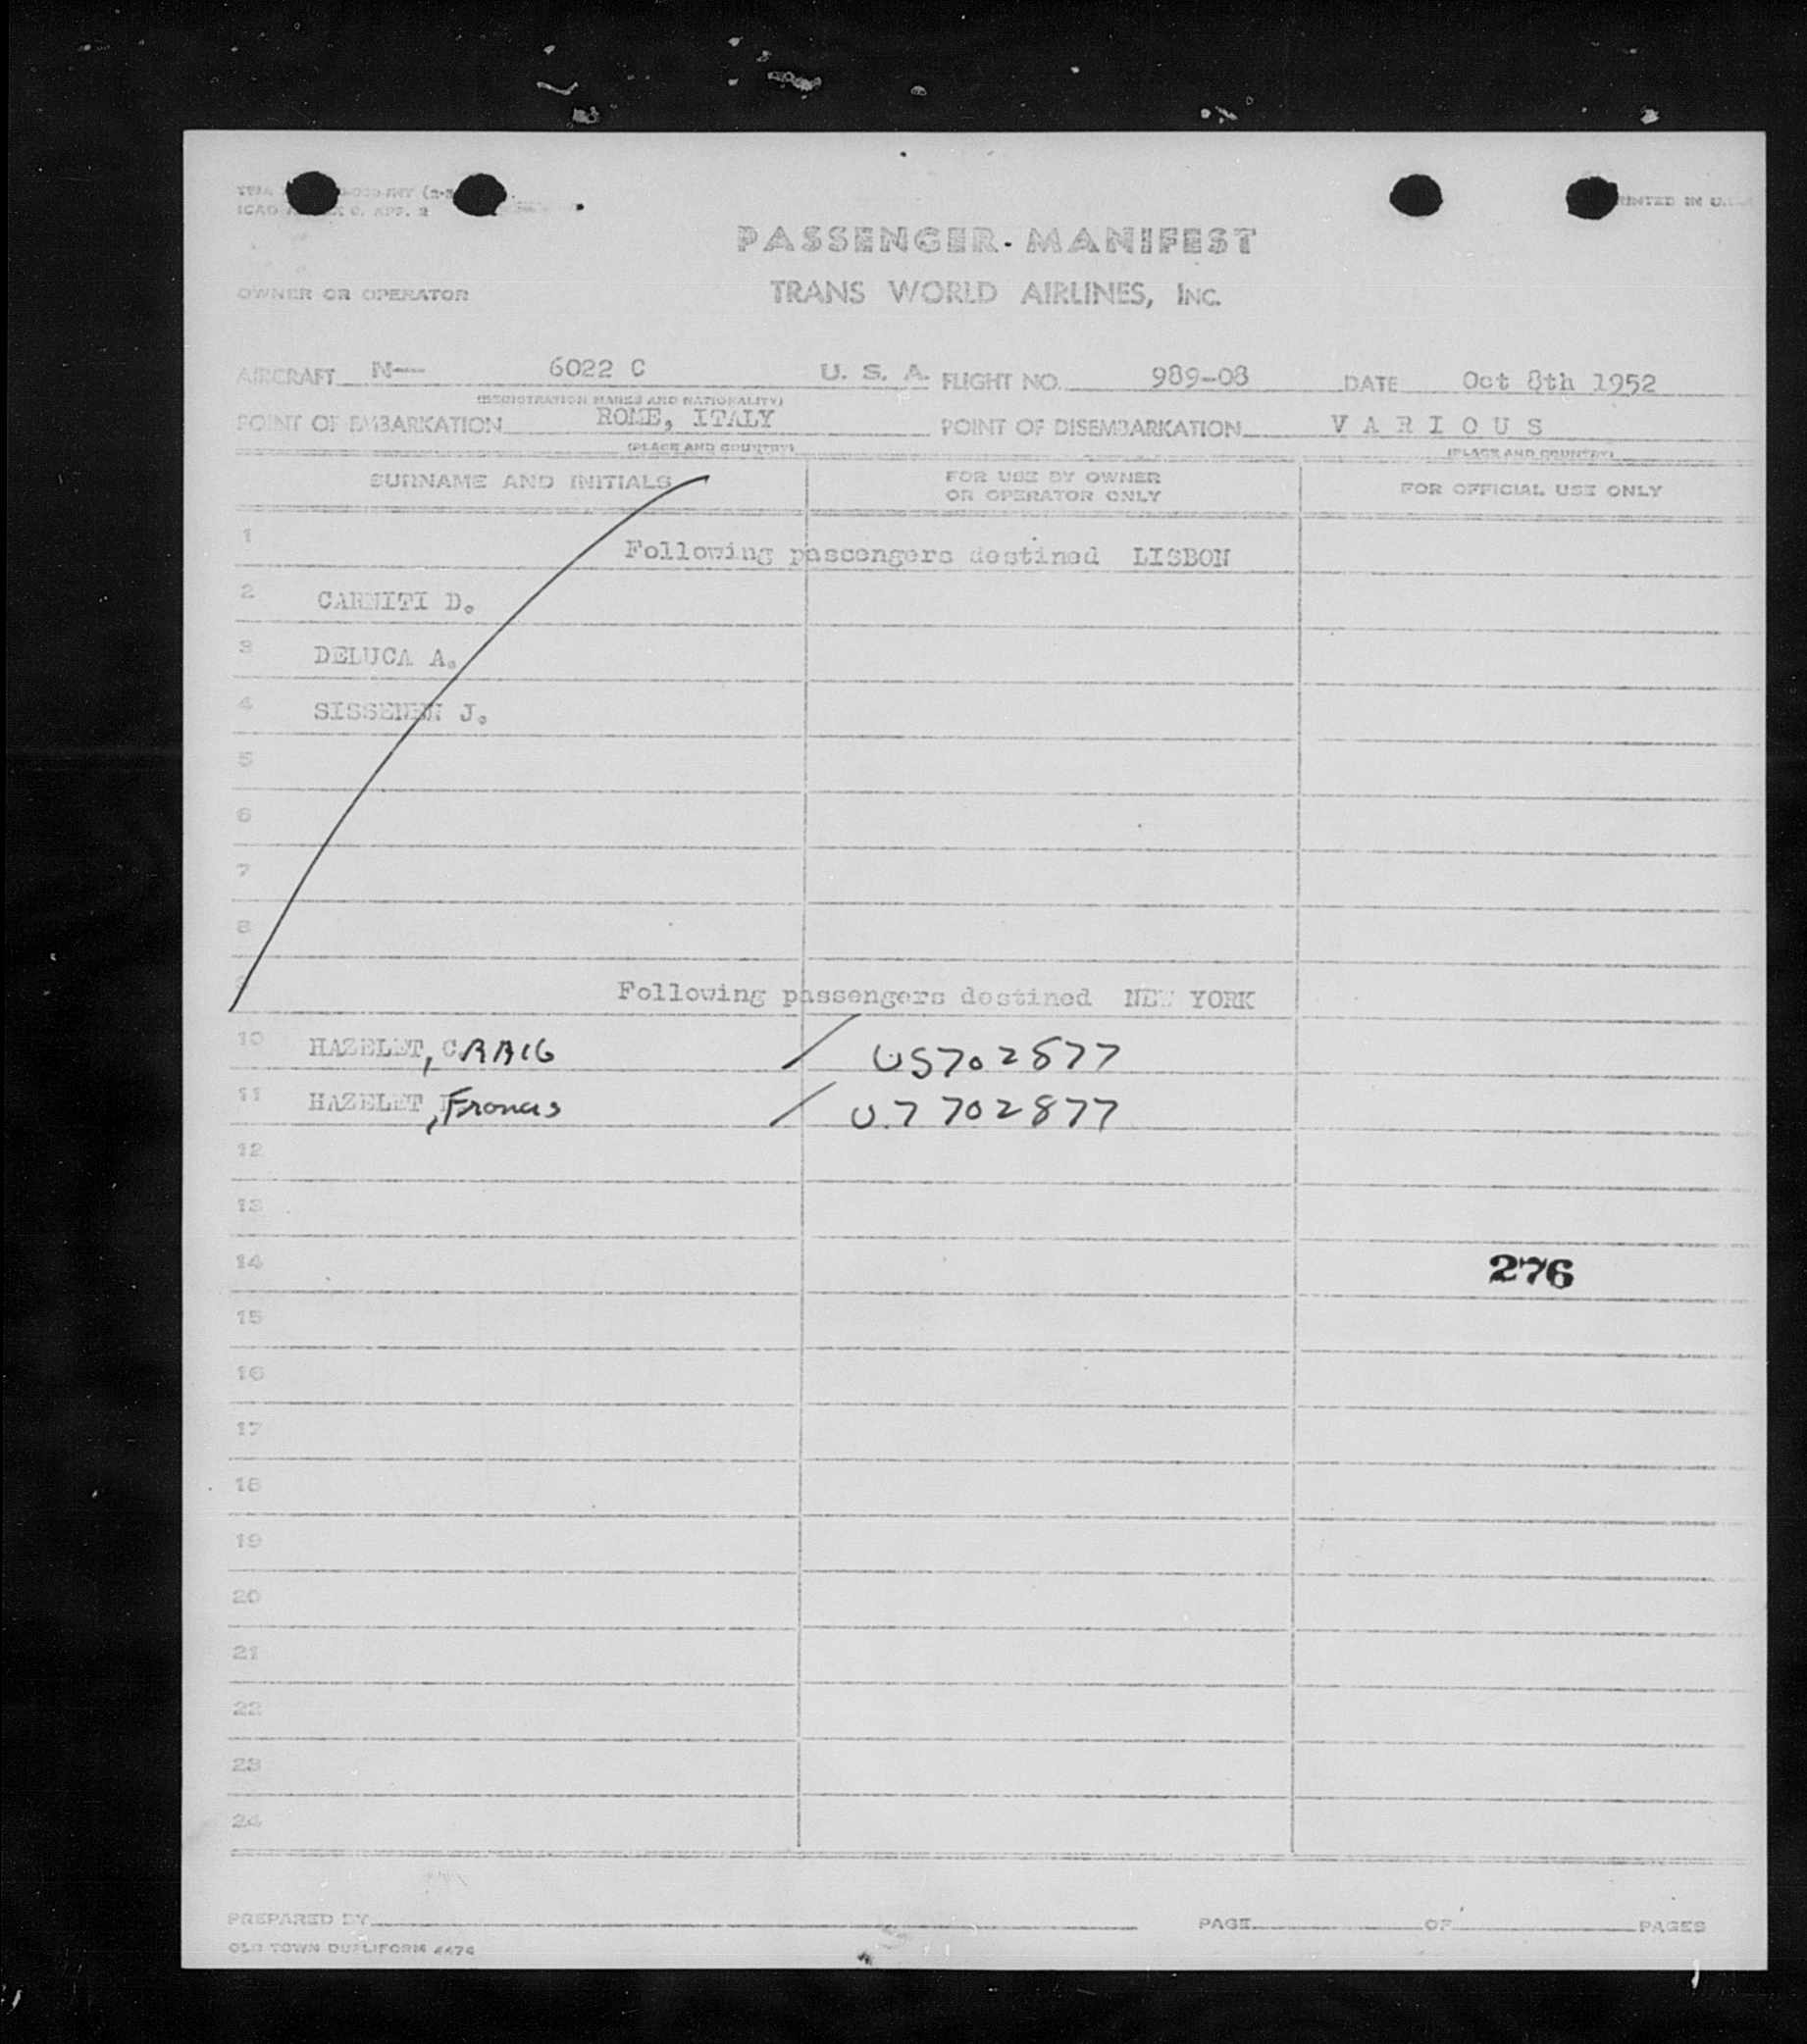 ICAO C. APP. 2
PRINTED IN U.S.A.
PASSENGER MANIFEST
OWNER OR OPERATOR TRANS WORLD AIRLINES, INC.
AIRCRAFT N— 6022 C U. S. A. FLIGHT NO. 989-08 DATE Oct 8th 1952
(REGISTRATION MARKS AND NATIONALITY)
POINT OF EMBARKATION ROME, ITALY POINT OF DISEMBARKATION V A R I O U S
(PLACE AND COUNTRY) (PLACE AND COUNTRY)
SURNAME AND INITIALS FOR USE BY OWNER OR OPERATOR ONLY FOR OFFICIAL USE ONLY
1 Following passengers destined LISBON
2 CARNITI D.
3 DELUCA A.
4 J.
5
6
7
8
9 Following passengers destined NEW YORK
10 HAZELET, CRAIG / US702877
11 HAZELET, Francis / U.7 702877
12
13
14 276
15
16
17
18
19
20
21
22
23
24
PREPARED BY PAGE OF PAGES
OLD TOWN DUPLIFORM 4474